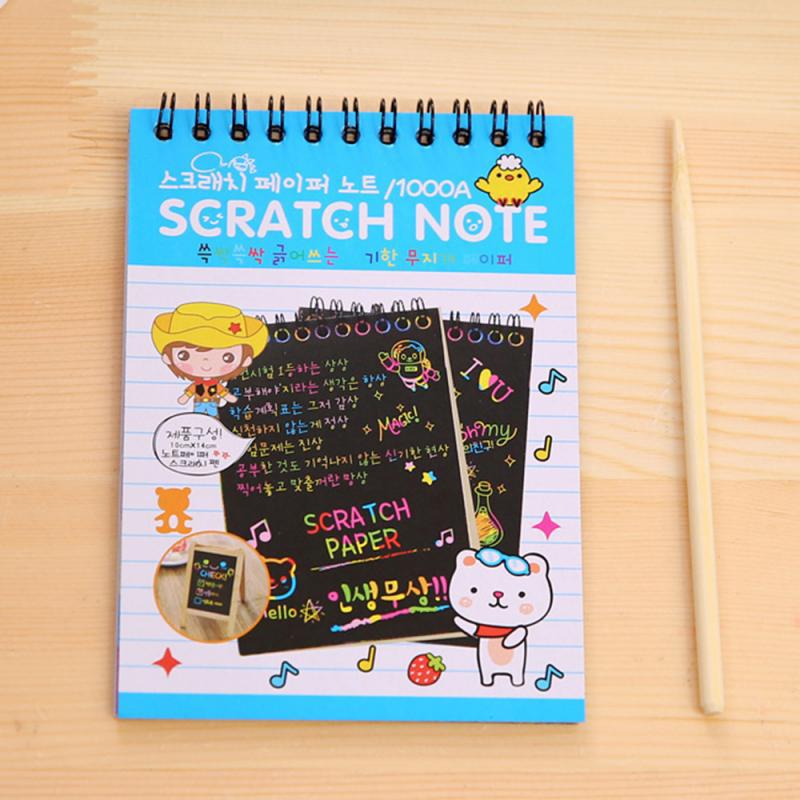 스크래치 페이퍼 노트 /1000A
SCRATCH NOTE
쓱싹쓱싹 긁어쓰는 기한 무지개 페이퍼
시험 1등하는 상상
공부해야지라는 생각은 항상
학습계획표는 그저 감상
실천하지 않는게 정상
문제는 진상
공부한 것도 기억나지 않는 신기한 현상
찍어놓고 맞출꺼란 망상
MAGIC!
SCRATCH
PAPER
hello
인생무상!!
I U
oh my
친구!
제품구성!
10cmX14cm
노트페이퍼
스크래치 펜
CHECK!